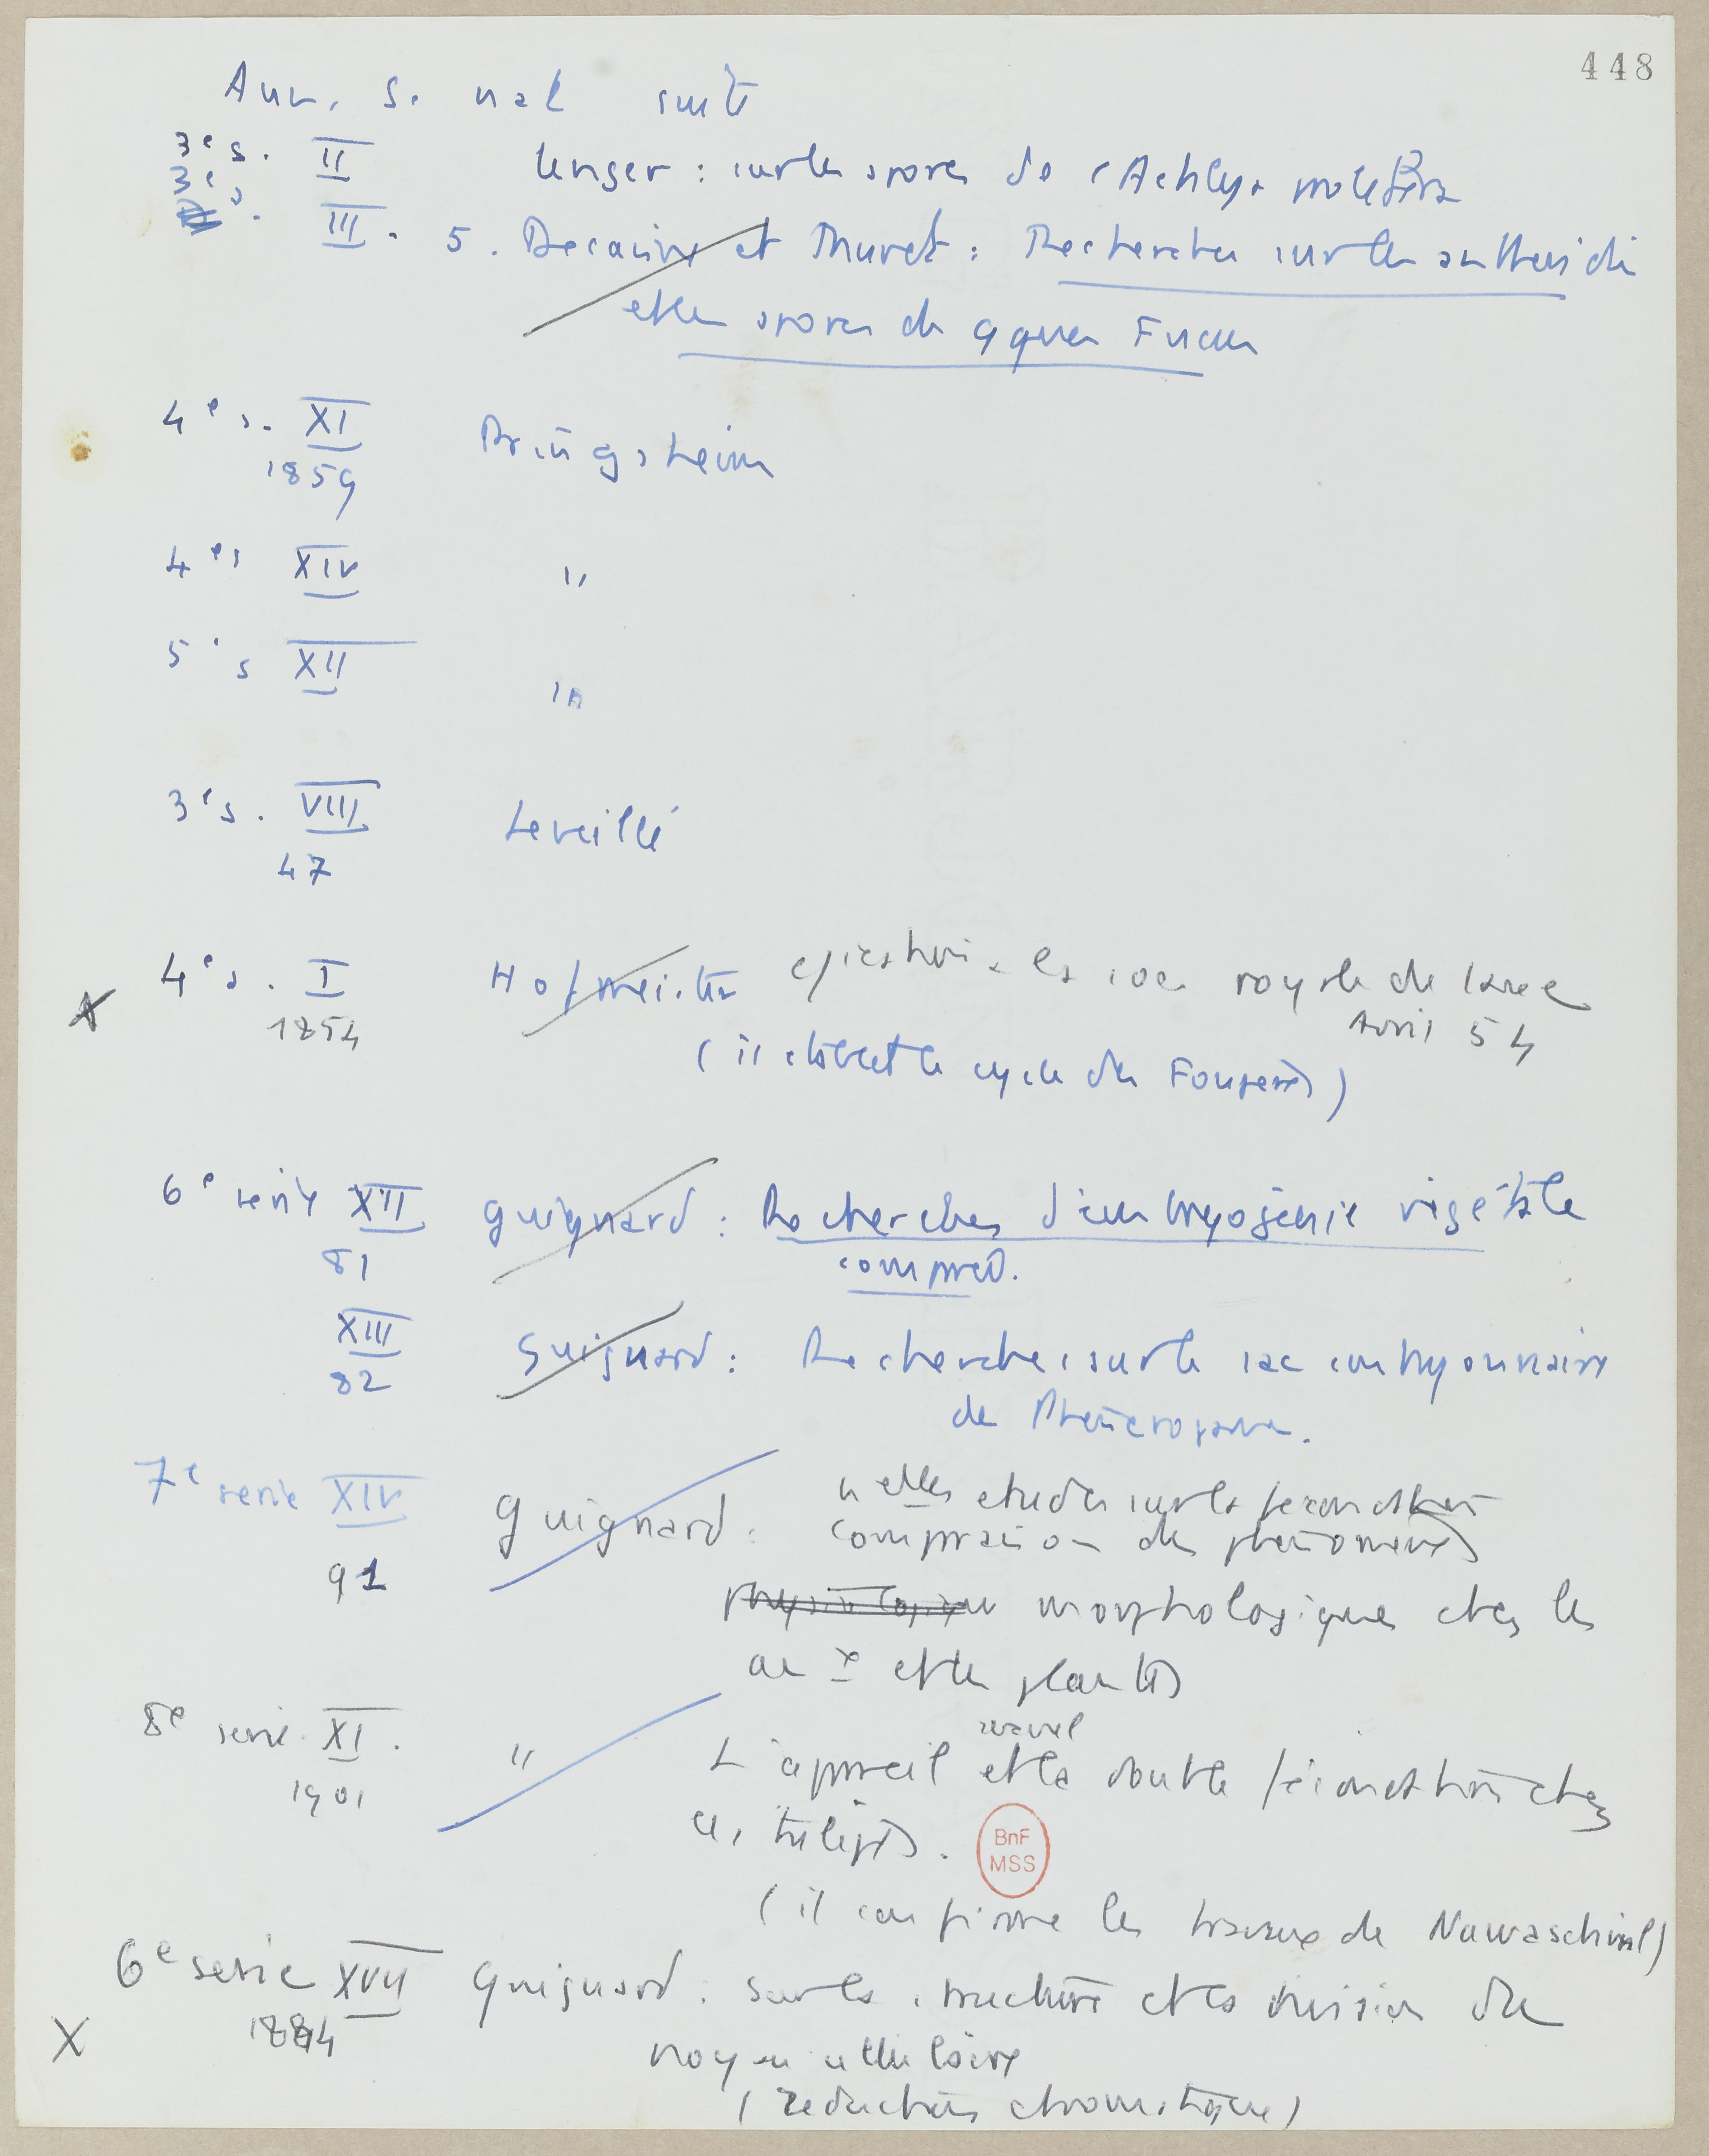 448
Ann. S. nat suite
3e s. II Unger : sur les spores de l'Achlya prolifera
3e s. III. 5. Decaisne et Thuret : Recherches sur les antheridies
et les spores de qques Fucus
4e s. XI Pringsheim
1859
4e s XIV "
5e s XII "
3e s. VIII Leveillé
47
4e s. I Hofmeister a la soc royale de Saxe
1854 Avril 54
(il établit le cycle des Fougères)
6e serie XII Guignard : Recherches d'embryogénie végétale
81 comparée.
XIII Guignard : Recherches sur le sac embryonnaire
82 de Phanérogames.
7e serie XIV Guignard : nelles etudes sur la fécondation
91 comparaison des phénomènes
physiologiques morphologiques chez les
aux et les plantes
8e serie XI. " L'appareil sexuel et la double fécondation chez
1901 les tulipes.
BnF
MSS
(il confirme les travaux de Nawaschine)
6e serie XVII Guignard : sur la structure et la division du
X 1884 noyau cellulaire
(reduction chromatique)